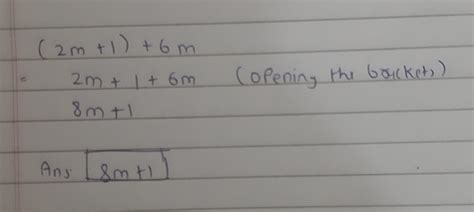 (2m+1)+6m
= 2m+1+6m (opening the brackets)
8m+1
Ans 8m+1